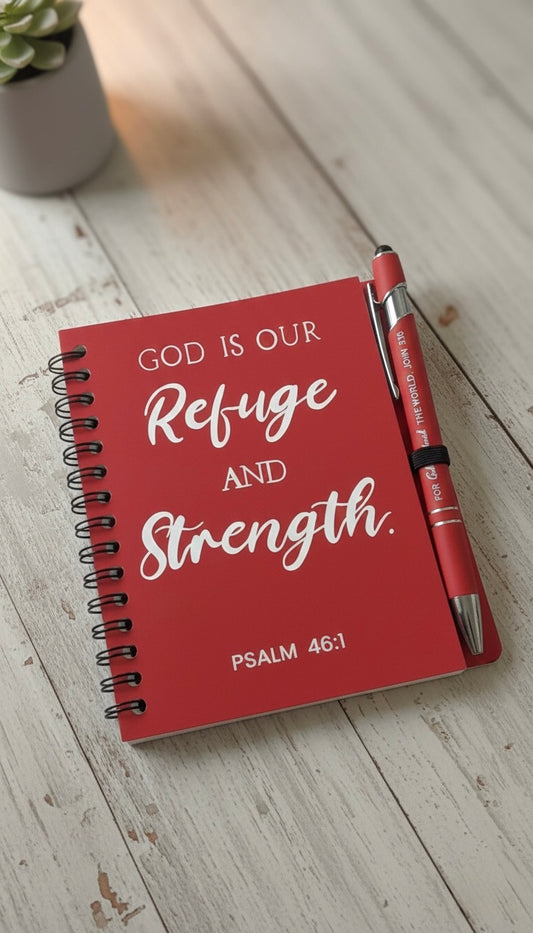 GOD IS OUR
Refuge
AND
Strength.
PSALM 46:1
FOR God THE WORLD. JOHN